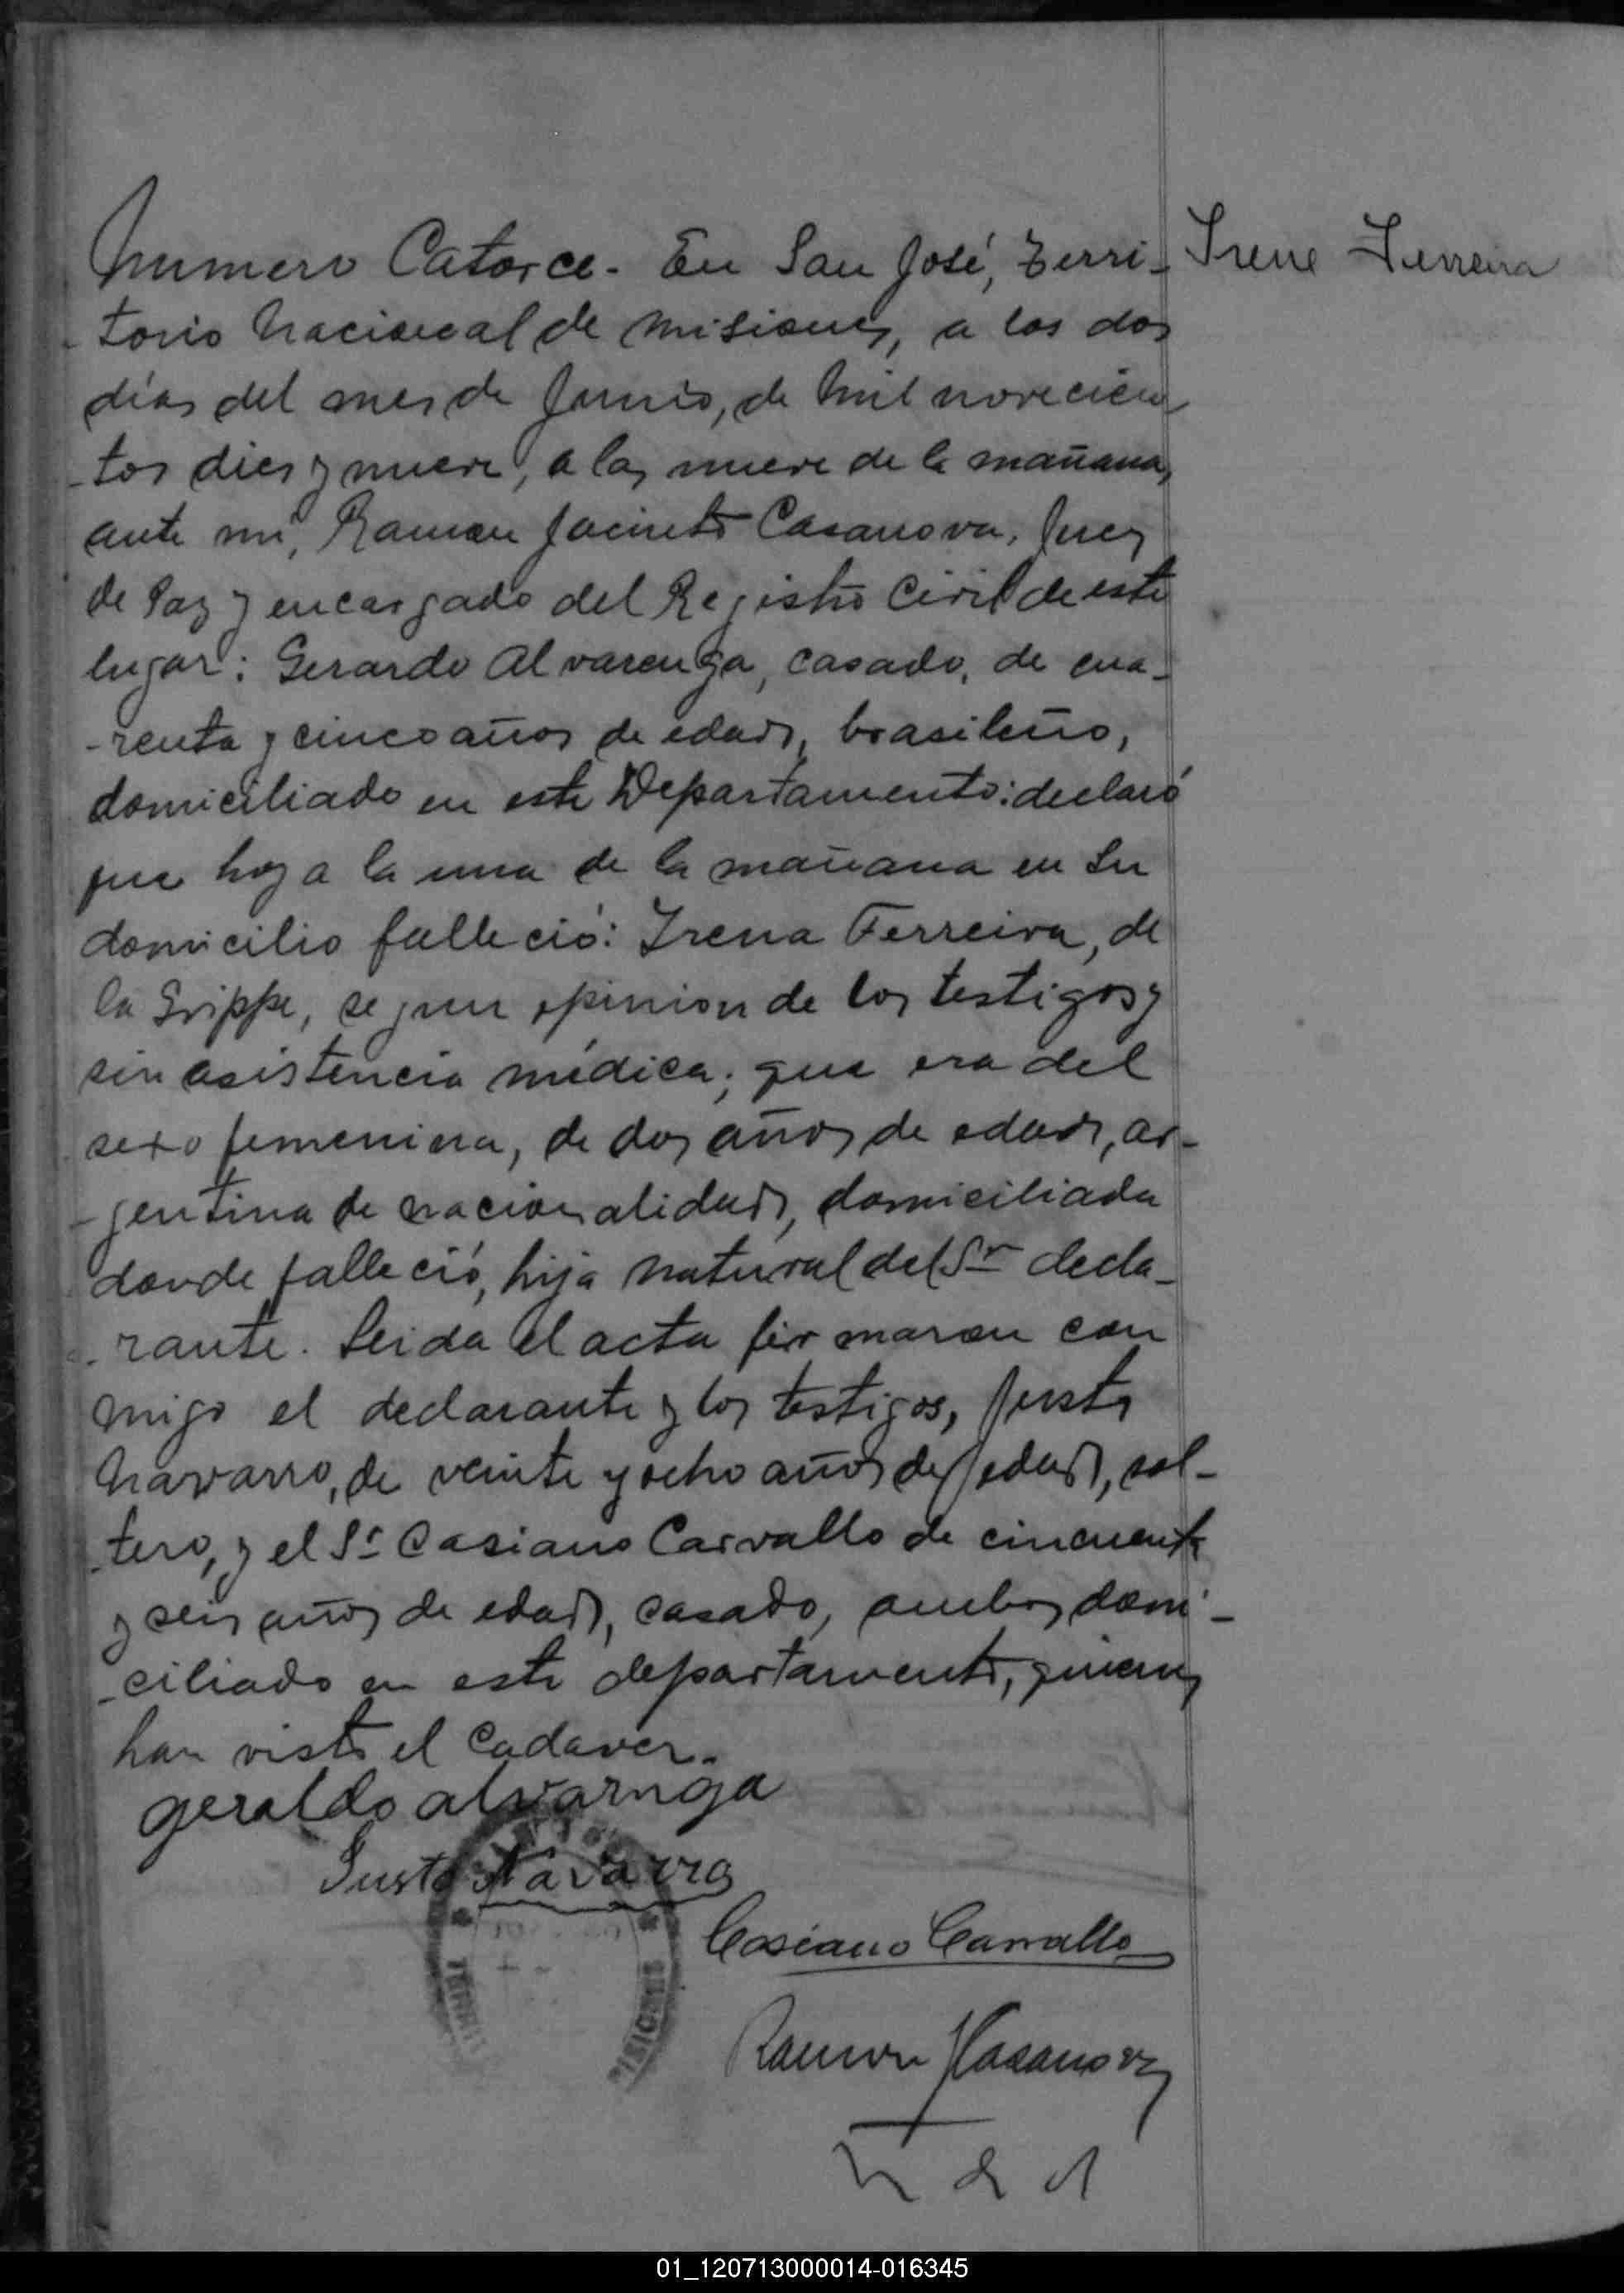 Numero Catorce. En San José, Terri-
Irene Ferreira
-torio Nacional de Misiones, a los dos
dias del mes de Junio, de mil novecien
-tos dies y nueve, a las nueve de la mañana,
ante mi, Ramon Jacinto Casanova, Juez
de Paz y encargado del Registro Civil de este
lugar: Gerardo Alvarenga, casado, de cua-
-renta y cinco años de edad, brasileño,
domiciliado en este Departamento: declaró
que hoy a la una de la mañana en su
domicilio falleció: Irena Ferreira, de
la Grippe, segun opinion de los testigos y
sin asistencia médica; que era del
sexo femenina, de dos años de edad, ar-
-jentina de nacionalidad, domiciliada
donde falleció, hija natural del Sr decla-
-rante. Leida el acta firmaron con
migo el declarante y los testigos, Justo
Navarro, de veinte y ocho años de edad, sol-
tero, y el Sr Casiano Carvallo de cincuenta
y seis años de edad, casado, ambos domi-
-ciliado en este departamento, quienes
han visto el cadaver.
geraldo alvarnga
Justo Navarro
Casiano Carvallo
Ramon JCasanova
01_120713000014-016345